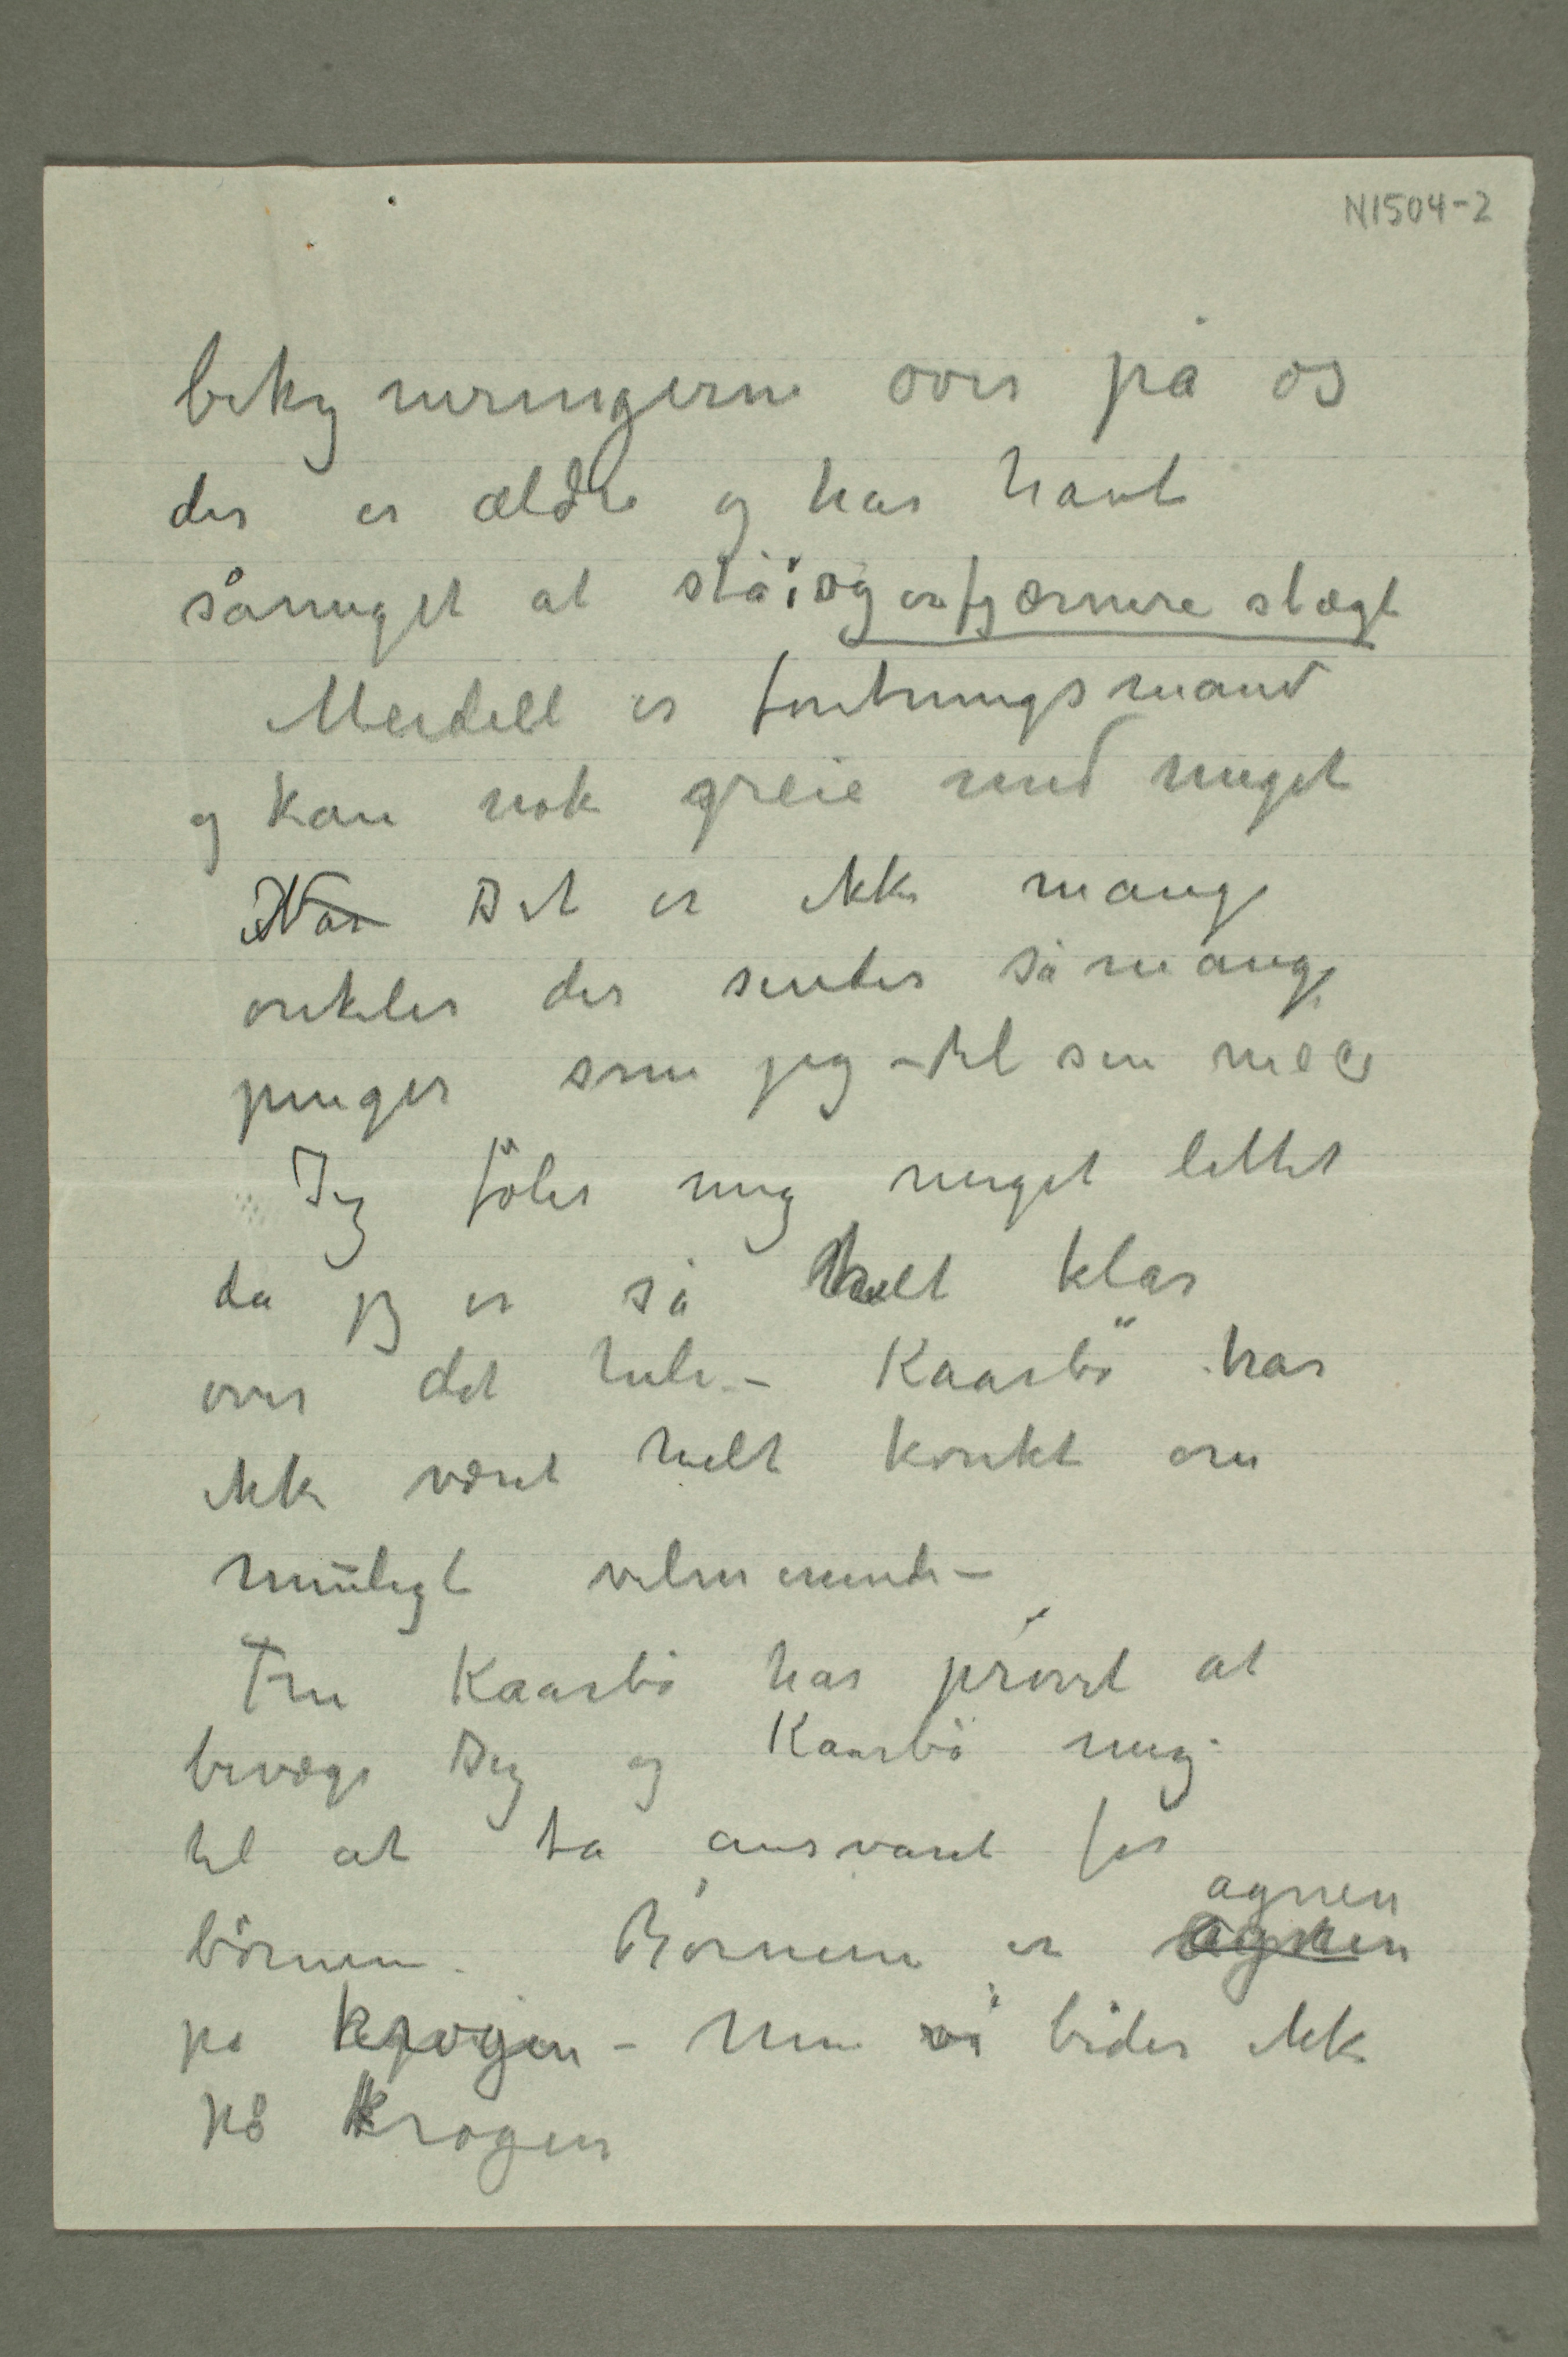 N1504-2
bekymringerne over på os
der er ældre og har havt
såmeget at stå i og er fjærnere slægt
Meidell er forretningsmand
og kan nok greie med meget
Når Det er ikke mange
onkler der sender så mange
penger som jeg – til sin niece
Jeg føler mig meget lettet
da jeg er så helt klar
over det hele. – Kaarbö har
ikke været helt korrekt om
muligt velmenende –
Fru Kaarbö har prövet at
bevæge Dig og Kaarbö mig
til at ta ansvaret for
agnen
börnene. Börnene er agnen
på krogen – Men vi bider ikke
på krogen